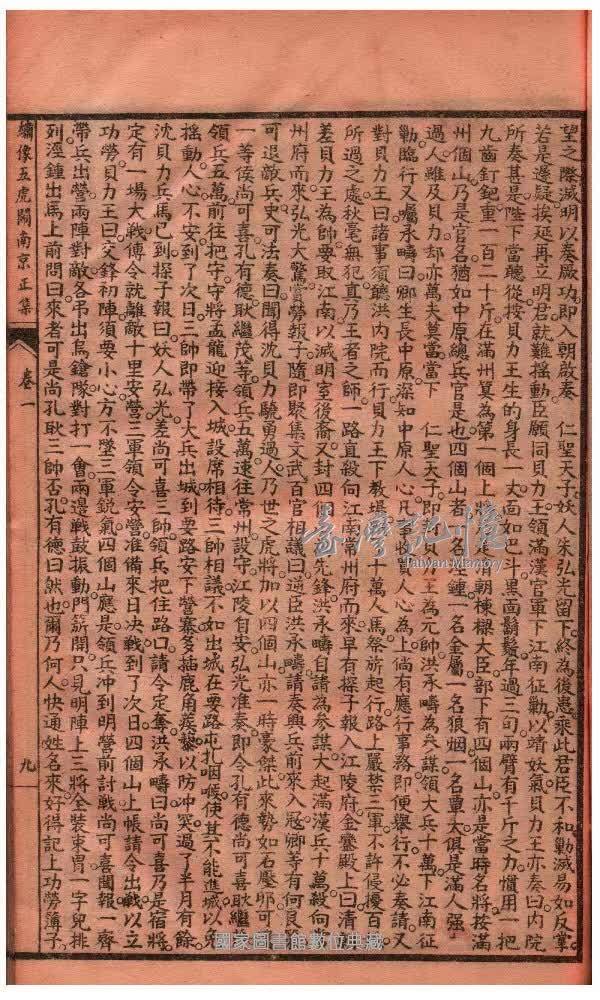 望之際滅明以奏厥功即入朝啟奏　仁聖天子妖人朱弘光留下終為後患乘此君臣不和勦滅易如反掌
若是遲疑挨延再立明君就難搖動臣願同貝力王領滿漢官軍下江南征勦以靖妖氣貝力王亦奏曰內院
所奏甚是陛下當聽從按貝力王生的身長一丈面如巴斗黑面鬍鬚年過三旬兩臂有千斤之力慣用一把
九齒釘鈀重一百二十斤在滿州算為第一個上將是走朝棟樑大臣部下有四個山亦是當時名將按滿
州個山乃是官名猶如中原總兵官是也四個山者一名涇鍾一名金屬一名狼烟一名單太俱是滿人強
過人雖及貝力王却亦萬夫莫當當下　仁聖天子即命貝力王為元帥洪承疇為參謀領大兵十萬下江南征
勦臨行又囑承疇曰卿生長中原深知中原人心凡事收買人心為上倘有應行事務即便舉行不必奏請又
對貝力王曰諸事須聽洪內院而行貝力王下教場點起十萬人馬祭旂起行路上嚴禁三軍不許侵擾百姓
所過之處秋毫無犯真乃王者之師一路直殺向江南常州府而來早有探子報入江陵府金鑾殿上曰清
差貝力王為帥要取江南以滅明室後裔又封四個山為先鋒洪承疇自請為參謀大起滿漢兵十萬殺向常
州府而來弘光大驚賞勞報子隨即聚集文武百官相議曰逆臣洪承疇請奏興兵前來入寇卿等有何良策
可退敵兵史可法奏曰聞得沈貝力驍勇過人乃世之虎將加以四個山亦一時豪傑此來勢如石壓卵可
一等侯尚可喜孔有德耿繼茂等領兵五萬速往常州設守江陵自安弘光准奏即令孔有德尚可喜耿繼
領兵五萬前往把守守將孟龍迎接入城設席相待三帥相議不如出城在要路屯扎咽喉使其不能進城以免
搖動人心不安到了次日三帥即帶了大兵出城到要路安下營寨多插鹿角蒺藜以防冲突過了半月有餘
沈貝力兵馬已到探子報曰妖人弘光差尚可喜三帥領兵把住路口請令定奪洪承疇曰尚可喜乃是宿將
定有一場大戰傳令就離敵十里安營三軍領令安營准備來日决戰到了次日四個山上帳請令出戰以立
功勞貝力王曰交鋒初陣須要小心方不墜三軍銳氣四個山應是領兵冲到明營前討戰尚可喜聞報一齊
帶兵出營兩陣對敵各弔出鳥鎗隊對打一會兩邊戰鼓振動門旂開只見明陣上三將全裝束胄一字兒排
列涇鍾出馬上前問曰來者可是尚孔耿三帥否孔有德曰然也爾乃何人快通姓名來好得記上功勞簿子
繡像五虎鬧南京正集
卷一
九
臺灣記憶
Taiwan Memory
國家圖書館數位典藏